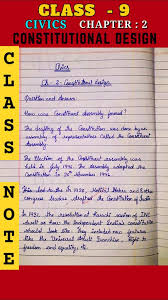 CLASS - 9
CIVICS CHAPTER : 2
CONSTITUTIONAL DESIGN
CLASS NOTE
Civics
Ch - 2 - Constitutional Design
Question and Answer
How was Constitutional Assembly formed?
The drafting of the Constitution was done by an
assembly of representatives called the Constituent
Assembly.
The Election of the Constituent Assembly was
held in July 1946. The Assembly adopted the
Constitution in 26th November
in 1928, Motilal Nehru and other
congress leaders drafted the Constitution of India
In 1931, the resolution at Karachi session of INC
dwelt on how the Independent India's constitution
should look like. They included
like the Universal Adult Franchise, right to
freedom and equality etc.